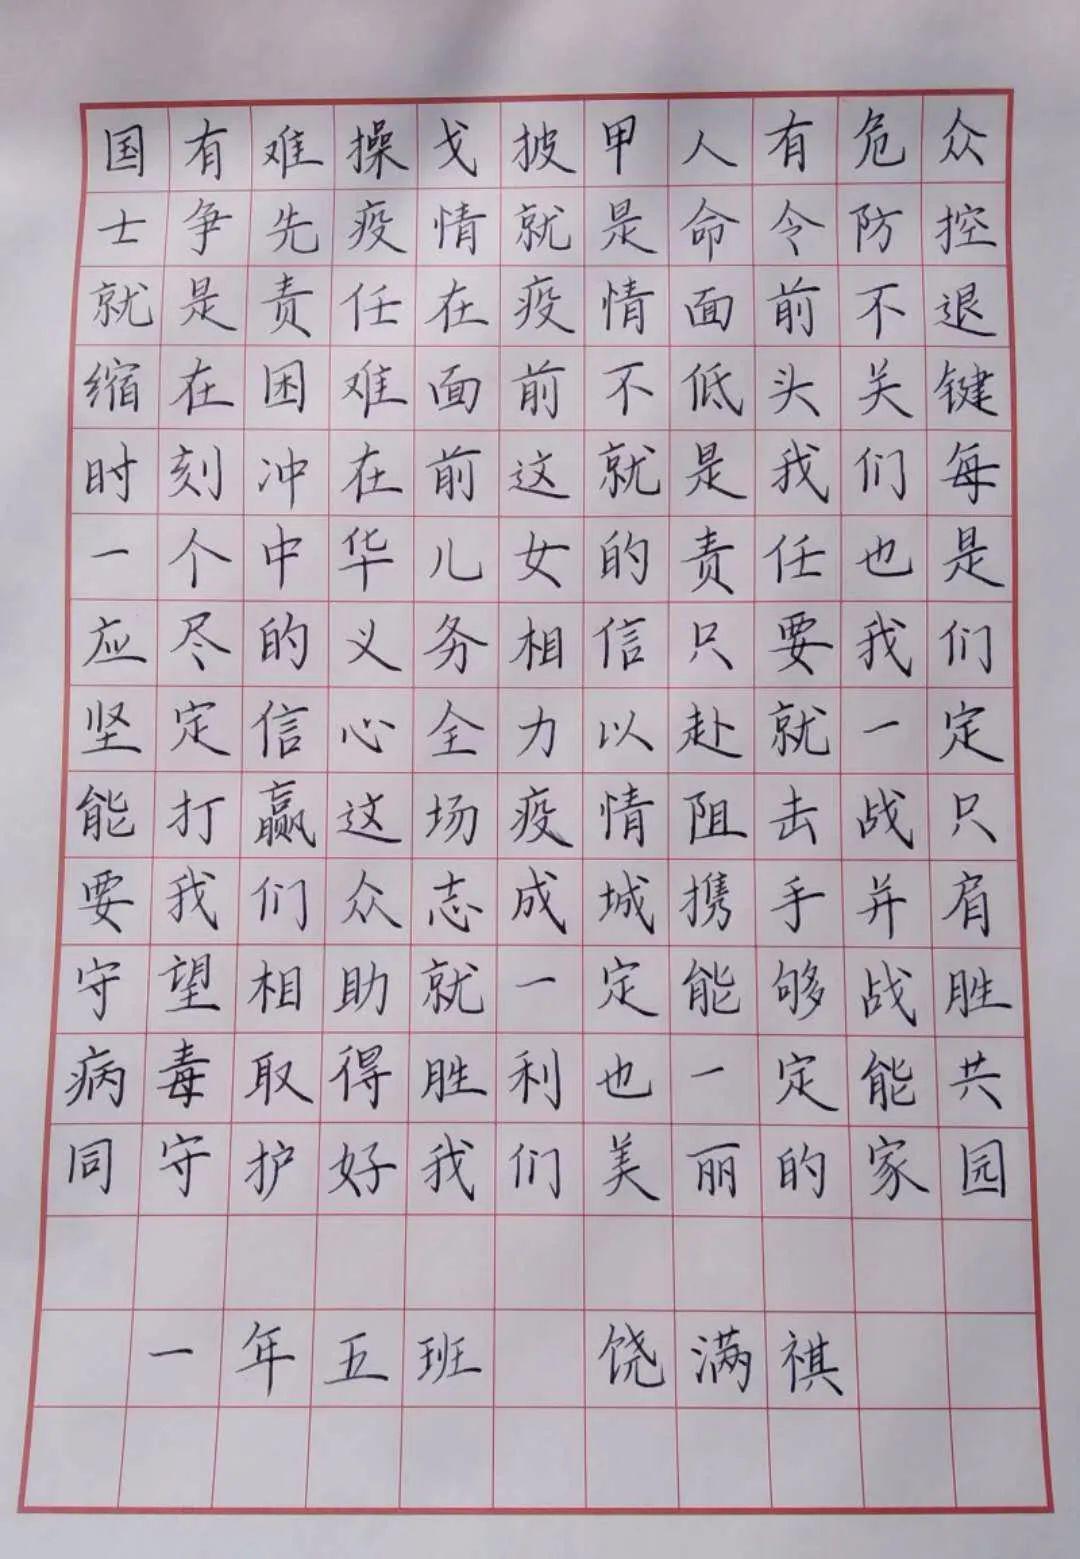 国有难操戈披甲人有危众
士争先疫情就是命令防控
就是责任在疫情面前不退
缩在困难面前不低头关键
时刻冲在前这就是我们每
一个中华儿女的责任也是
应尽的义务相信只要我们
坚定信心全力以赴就一定
能打赢这场疫情阻击战只
要我们众志成城携手并肩
守望相助就一定能够战胜
病毒取得胜利也一定能共
同守护好我们美丽的家园
一年五班 饶满祺